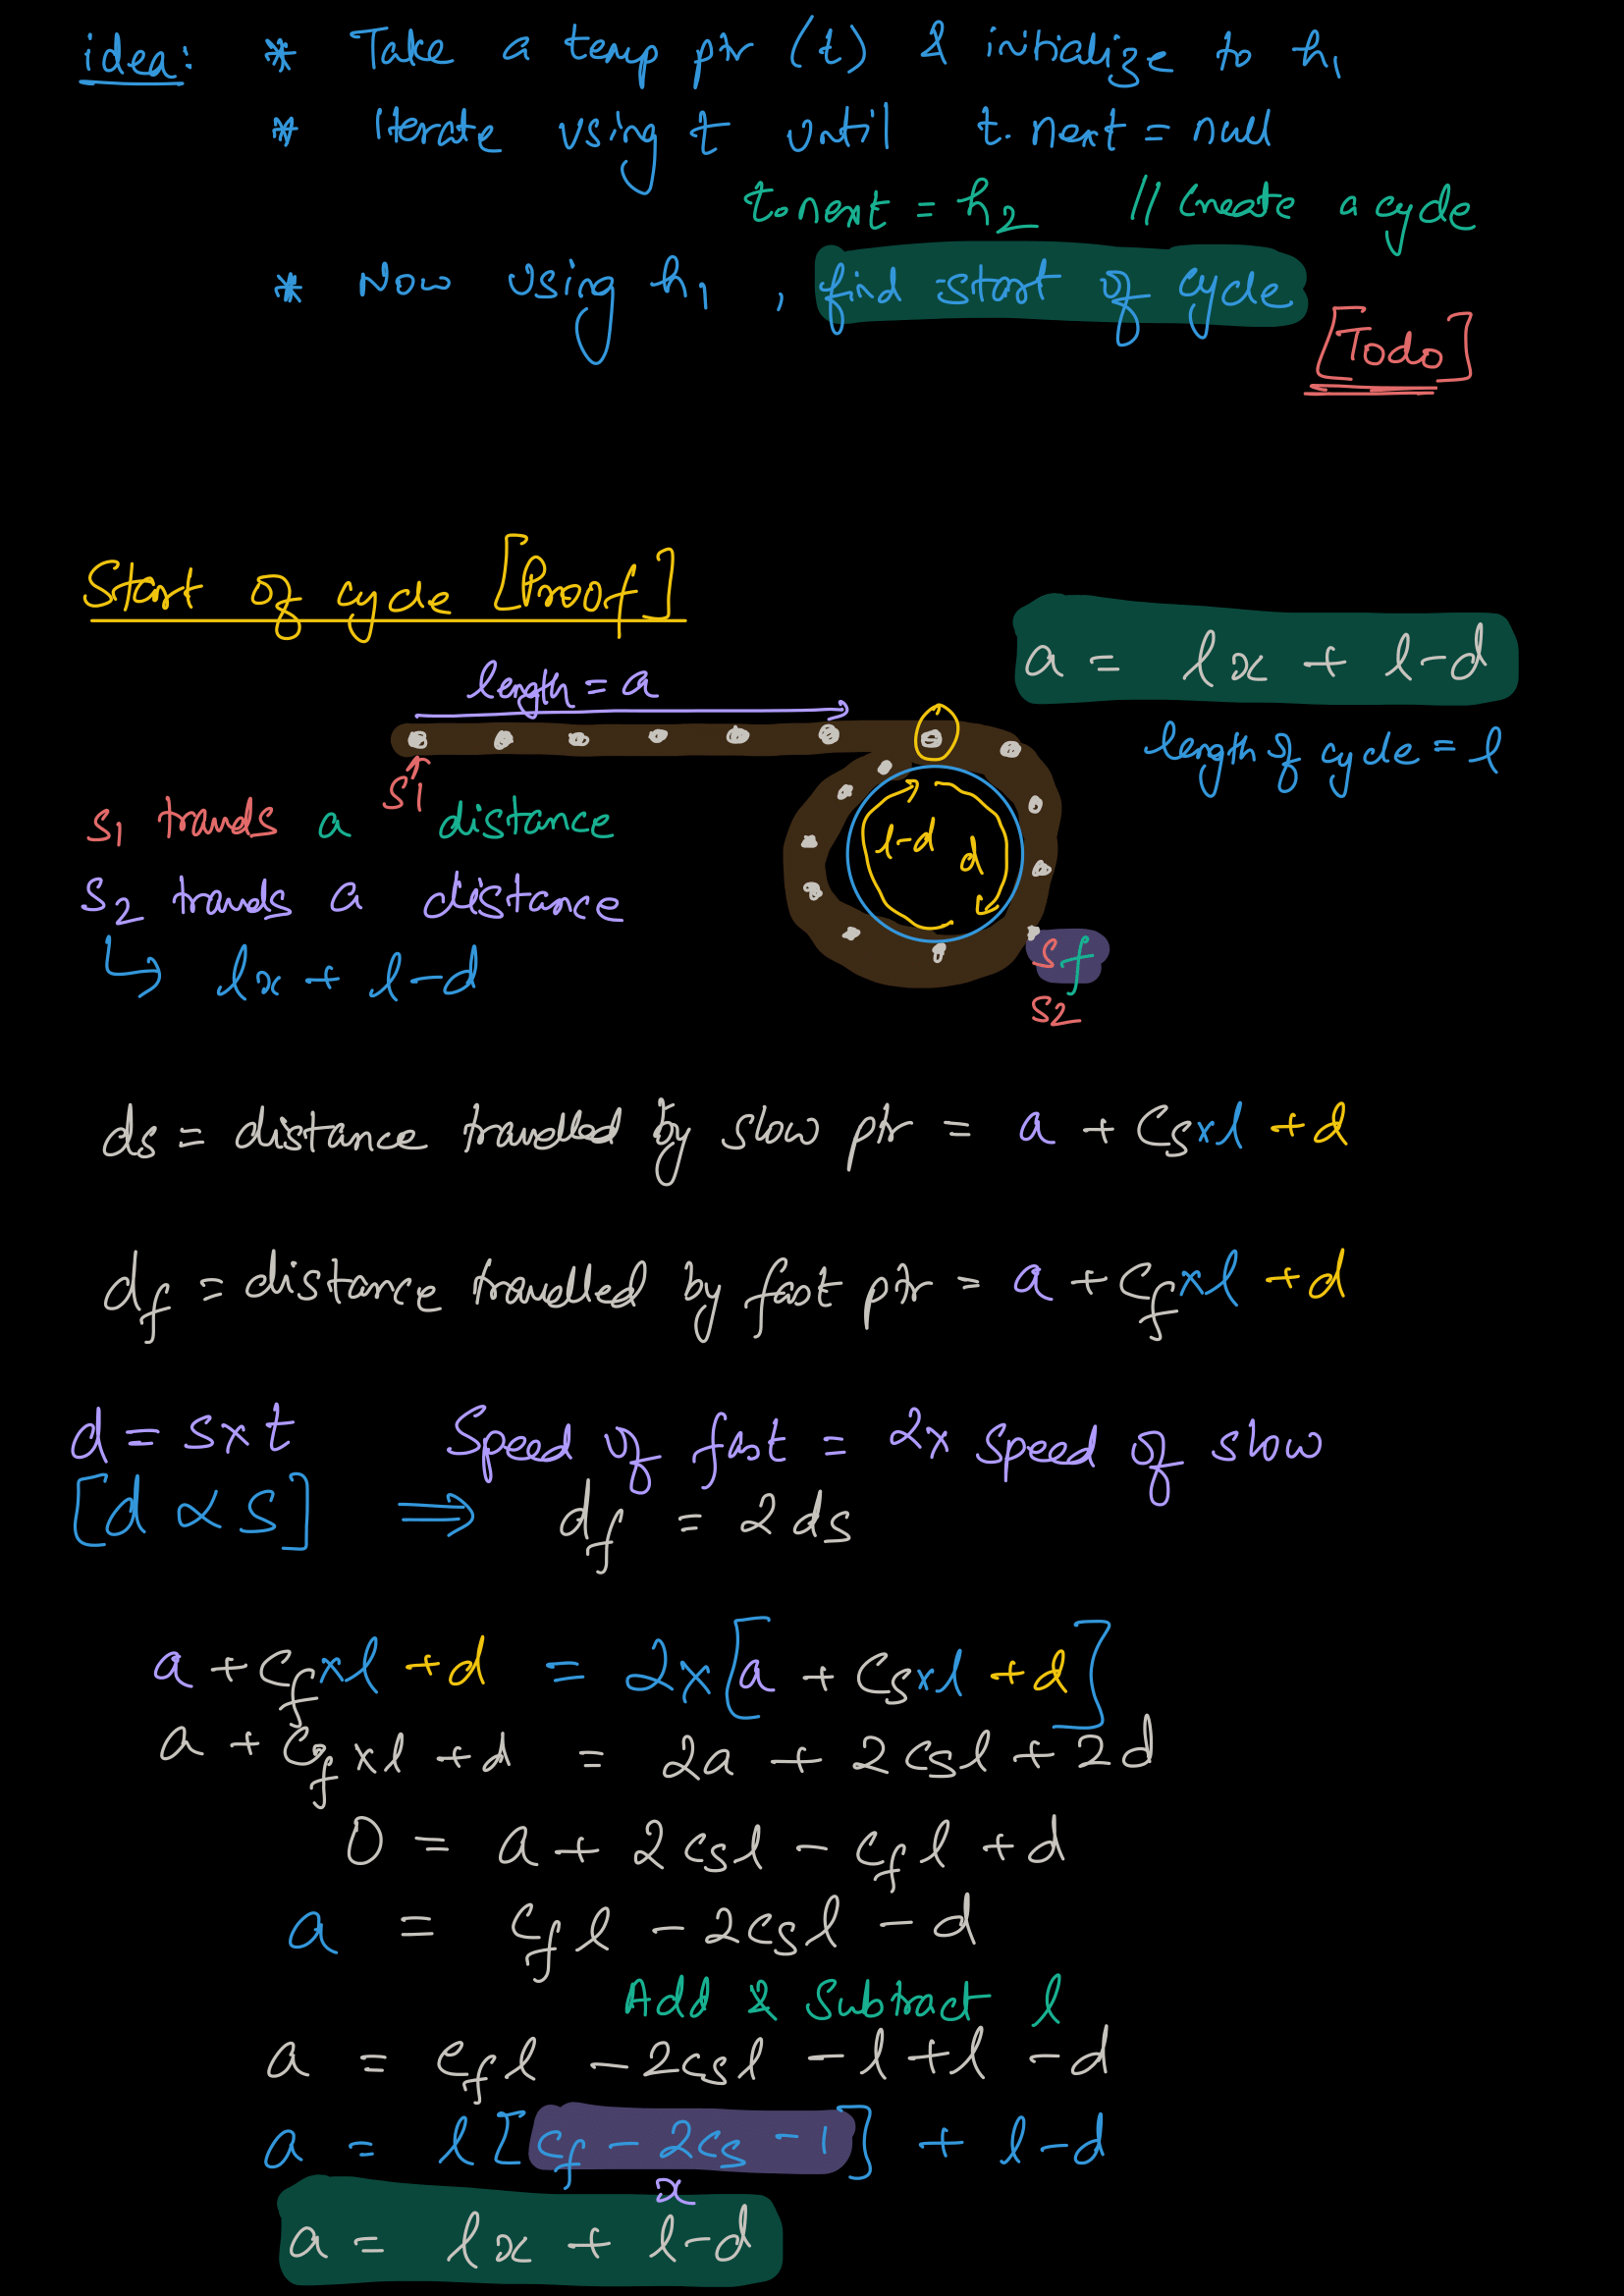 idea: * Take a temp ptr (t) & initialize to h1
* Iterate using t until t.next = null
t.next = h2 // Create a cycle
* Now using h1, find start of cycle
[Todo]
Start of cycle [Proof]
a = lx + l-d
length = a
length of cycle = l
S1
S1 travels a distance
l-d d
S2 travels a distance
↳ lx + l-d
S f
S2
ds = distance travelled by slow ptr = a + Cs×l + d
df = distance travelled by fast ptr = a + Cf×l + d
d = s×t Speed of fast = 2× speed of slow
[d ∝ S] ⇒ df = 2ds
a + Cf×l + d = 2×[a + Cs×l + d]
a + Cf×l + d = 2a + 2Csl + 2d
0 = a + 2Csl - Cfl + d
a = Cfl - 2Csl - d
Add & Subtract l
a = Cfl - 2Csl - l + l - d
a = l[Cf - 2Cs - 1] + l-d
x
a = lx + l-d